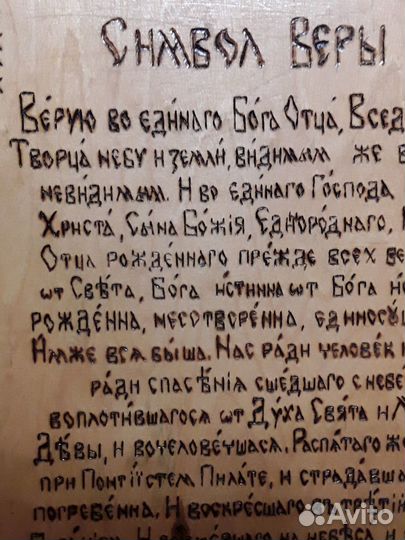 Символ Веры
Вѣ́рую во еди́наго Бо́га Отца́, Всед
Творца́ небу и земли́, ви́димым же
невидимым. И во еди́наго Го́спода
Христа́, Сы́на Бо́жія, Единоро́днаго,
Отца рожде́ннаго пре́жде всех ве
ѿ Свѣ́та, Бо́га и́стинна ѿ Бо́га и́с
рожде́нна, несотворе́нна, единосу́щ
Имже вся бы́ша. Нас ра́ди человек и
ра́ди спасе́нія сше́дшаго с небе
воплоти́вшагося ѿ Ду́ха Свята и
Дѣ́вы, и вочелове́чшася. Распя́таго же
при Понті́йстем Пилáте, и страда́вша
погребе́нна. И воскре́сшаго
на небеса и
Avito